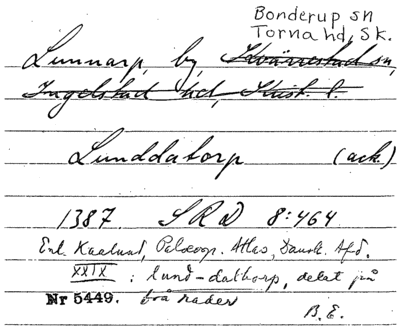 Bonderup sn
Torna hd, Sk.
Lunnarp, by, Kvärrestad sn,
Ingelstad hd, Krist. l.
Lunddatorp (ack.)
1387. SRD 8:464
Enl. Kaalund, Palæogr. Atlas, Dansk Afd.
XXIX : lund-dathorp, delat på
Nr 5449. två rader
B.E.